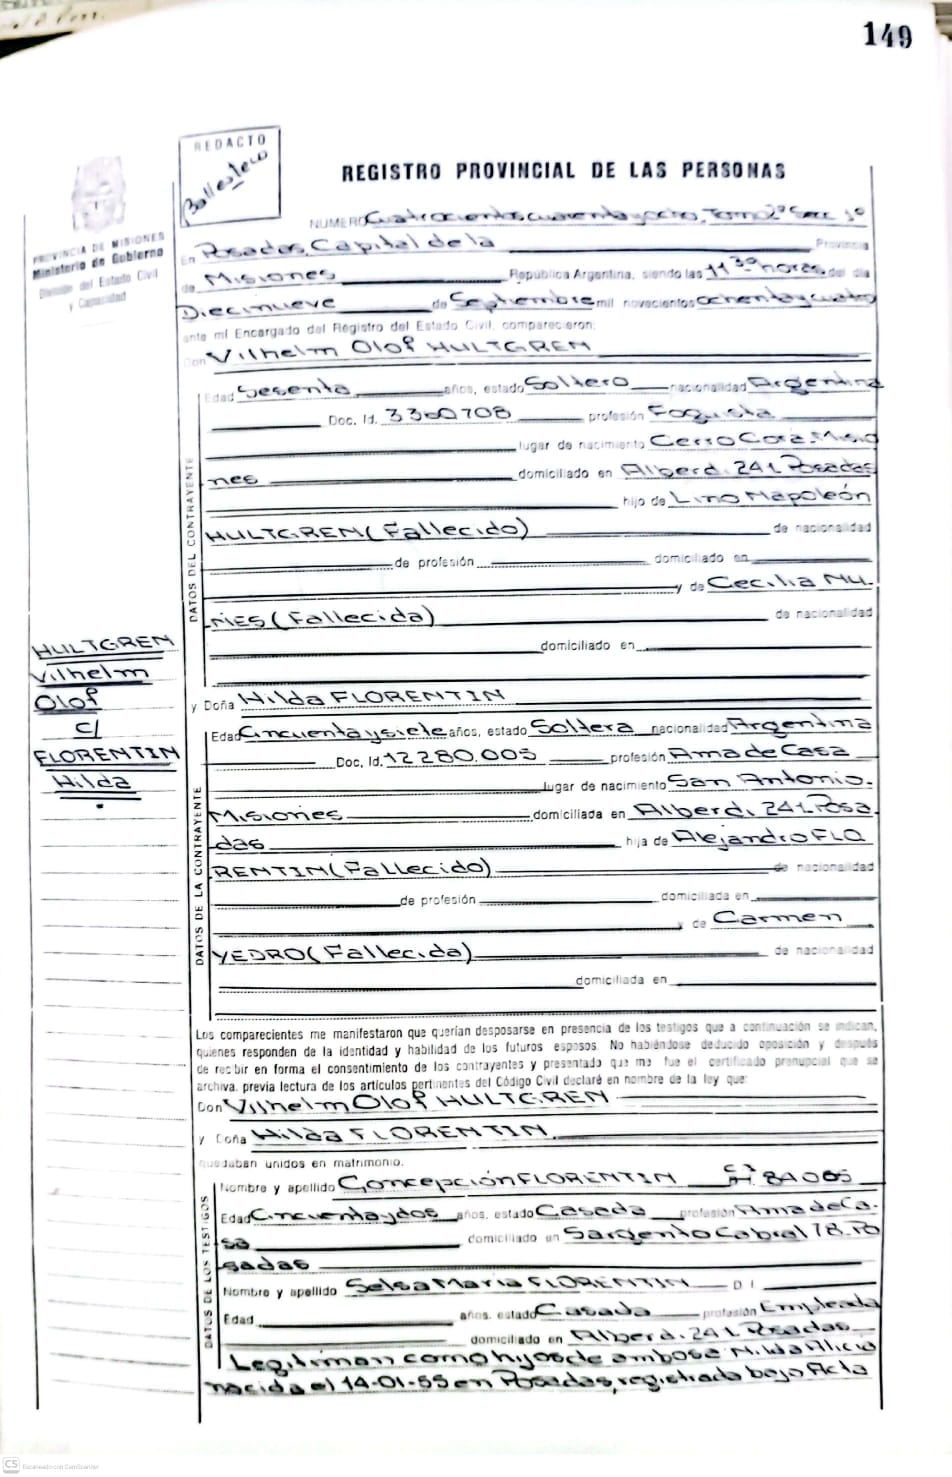 149
REDACTO
Ballestero
REGISTRO PROVINCIAL DE LAS PERSONAS
PROVINCIA DE MISIONES
Ministerio de Gobierno
División del Estado Civil
y Capacidad
NUMERO Cuatrocientos cuarenta y ocho, Tomo 2º Secc 1º
En Posadas, Capital de la Provincia
de Misiones República Argentina, siendo las 11 30 horas del día
Diecinueve de Septiembre mil novecientos ochenta y cuatro
ante mí Encargado del Registro del Estado Civil, comparecieron:
Don Vilhelm Olof HULTGREN
DATOS DEL CONTRAYENTE
Edad Sesenta años, estado Soltero nacionalidad Argentina
Doc. Id. 3360708 profesión Foguista
lugar de nacimiento Cerro Corá-Misio
nes domiciliado en Alberdi 241 Posadas
hijo de Lino Napoleón
HULTGREN (Fallecido) de nacionalidad
de profesión domiciliado en
y de Cecilia NU-
ÑES (Fallecida) de nacionalidad
domiciliado en
HULTGREN
Vilhelm
Olof
c/
FLORENTIN
Hilda
y Doña Hilda FLORENTIN
DATOS DE LA CONTRAYENTE
Edad Cincuenta y siete años, estado Soltera nacionalidad Argentina
Doc. Id. 12280.005 profesión Ama de Casa
lugar de nacimiento San Antonio-
Misiones domiciliada en Alberdi 241 Posa
das hija de Alejandro FLO
RENTIN (Fallecido) de nacionalidad
de profesión domiciliada en
y de Carmen
YEDRO (Fallecida) de nacionalidad
domiciliada en
Los comparecientes me manifestaron que querían desposarse en presencia de los testigos que a continuación se indican,
quienes responden de la identidad y habilidad de los futuros esposos. No habiéndose deducido oposición y después
de recibir en forma el consentimiento de los contrayentes y presentado que me fue el certificado prenupcial que se
archiva, previa lectura de los artículos pertinentes del Código Civil declaré en nombre de la ley que:
Don Vilhelm Olof HULTGREN
y Doña Hilda FLORENTIN
quedaban unidos en matrimonio.
DATOS DE LOS TESTIGOS
Nombre y apellido Concepción FLORENTIN 84065
Edad Cincuenta y dos años, estado Casada profesión Ama de Ca-
sa domiciliado en Sargento Cabral 78-Po
sadas
Nombre y apellido Selsa Maria FLORENTIN D I
Edad años, estado Casada profesión Empleada
domiciliado en Alberdi 241 Posadas
Legitiman como hijos de ambos a: Nilda Alicia
nacida el 14-01-55 en Posadas, registrada bajo Acta
CS Escaneado con CamScanner